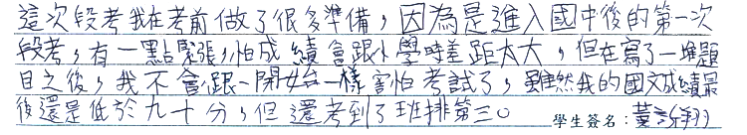 這次段考我在考前做了很多準備，因為是進入國中後的第一次
段考，有一點緊張，怕成績會跟小學時差距太大，但在寫了一堆題
目之後，我不會跟一開始一樣害怕考試了，雖然我的國文成績最
後還是低於九十分，但還考到了班排第三。
學生簽名：黃許翔